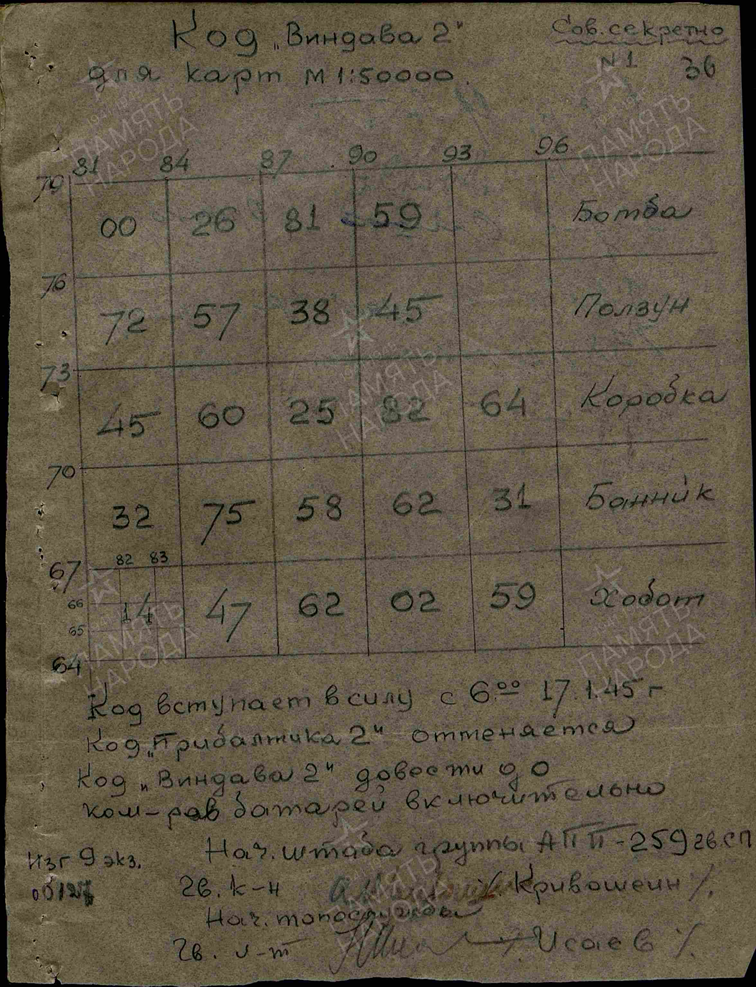 Код „Виндава 2"
Сов. секретно
для карт М 1:50000.
N 1 36
81 84 87 90 93 96
79
00 26 81 59 Ботва
76
72 57 38 45 Ползун
73
45 60 25 82 64 Коробка
70
32 75 58 62 31 Банник
67 82 83
66 14 47 62 02 59 Хобот
65
64
Код вступает в силу с 6.00 17.1.45 г
Код „Прибалтика 2" отменяется
Код „Виндава 2" довести до
ком-ров батарей включительно
Нач. штаба группы АПП-259 гв. СП
Изг 9 экз.
Гв. к-н /Кривошеин/.
Нач. топослужбы
Гв. л-т /Исаев/.
ПАМЯТЬ
НАРОДА
ПАМЯТЬ
НАРОДА
ПАМЯТЬ
НАРОДА
ПАМЯТЬ
НАРОДА
ПАМЯТЬ
НАРОДА
ПАМЯТЬ
НАРОДА